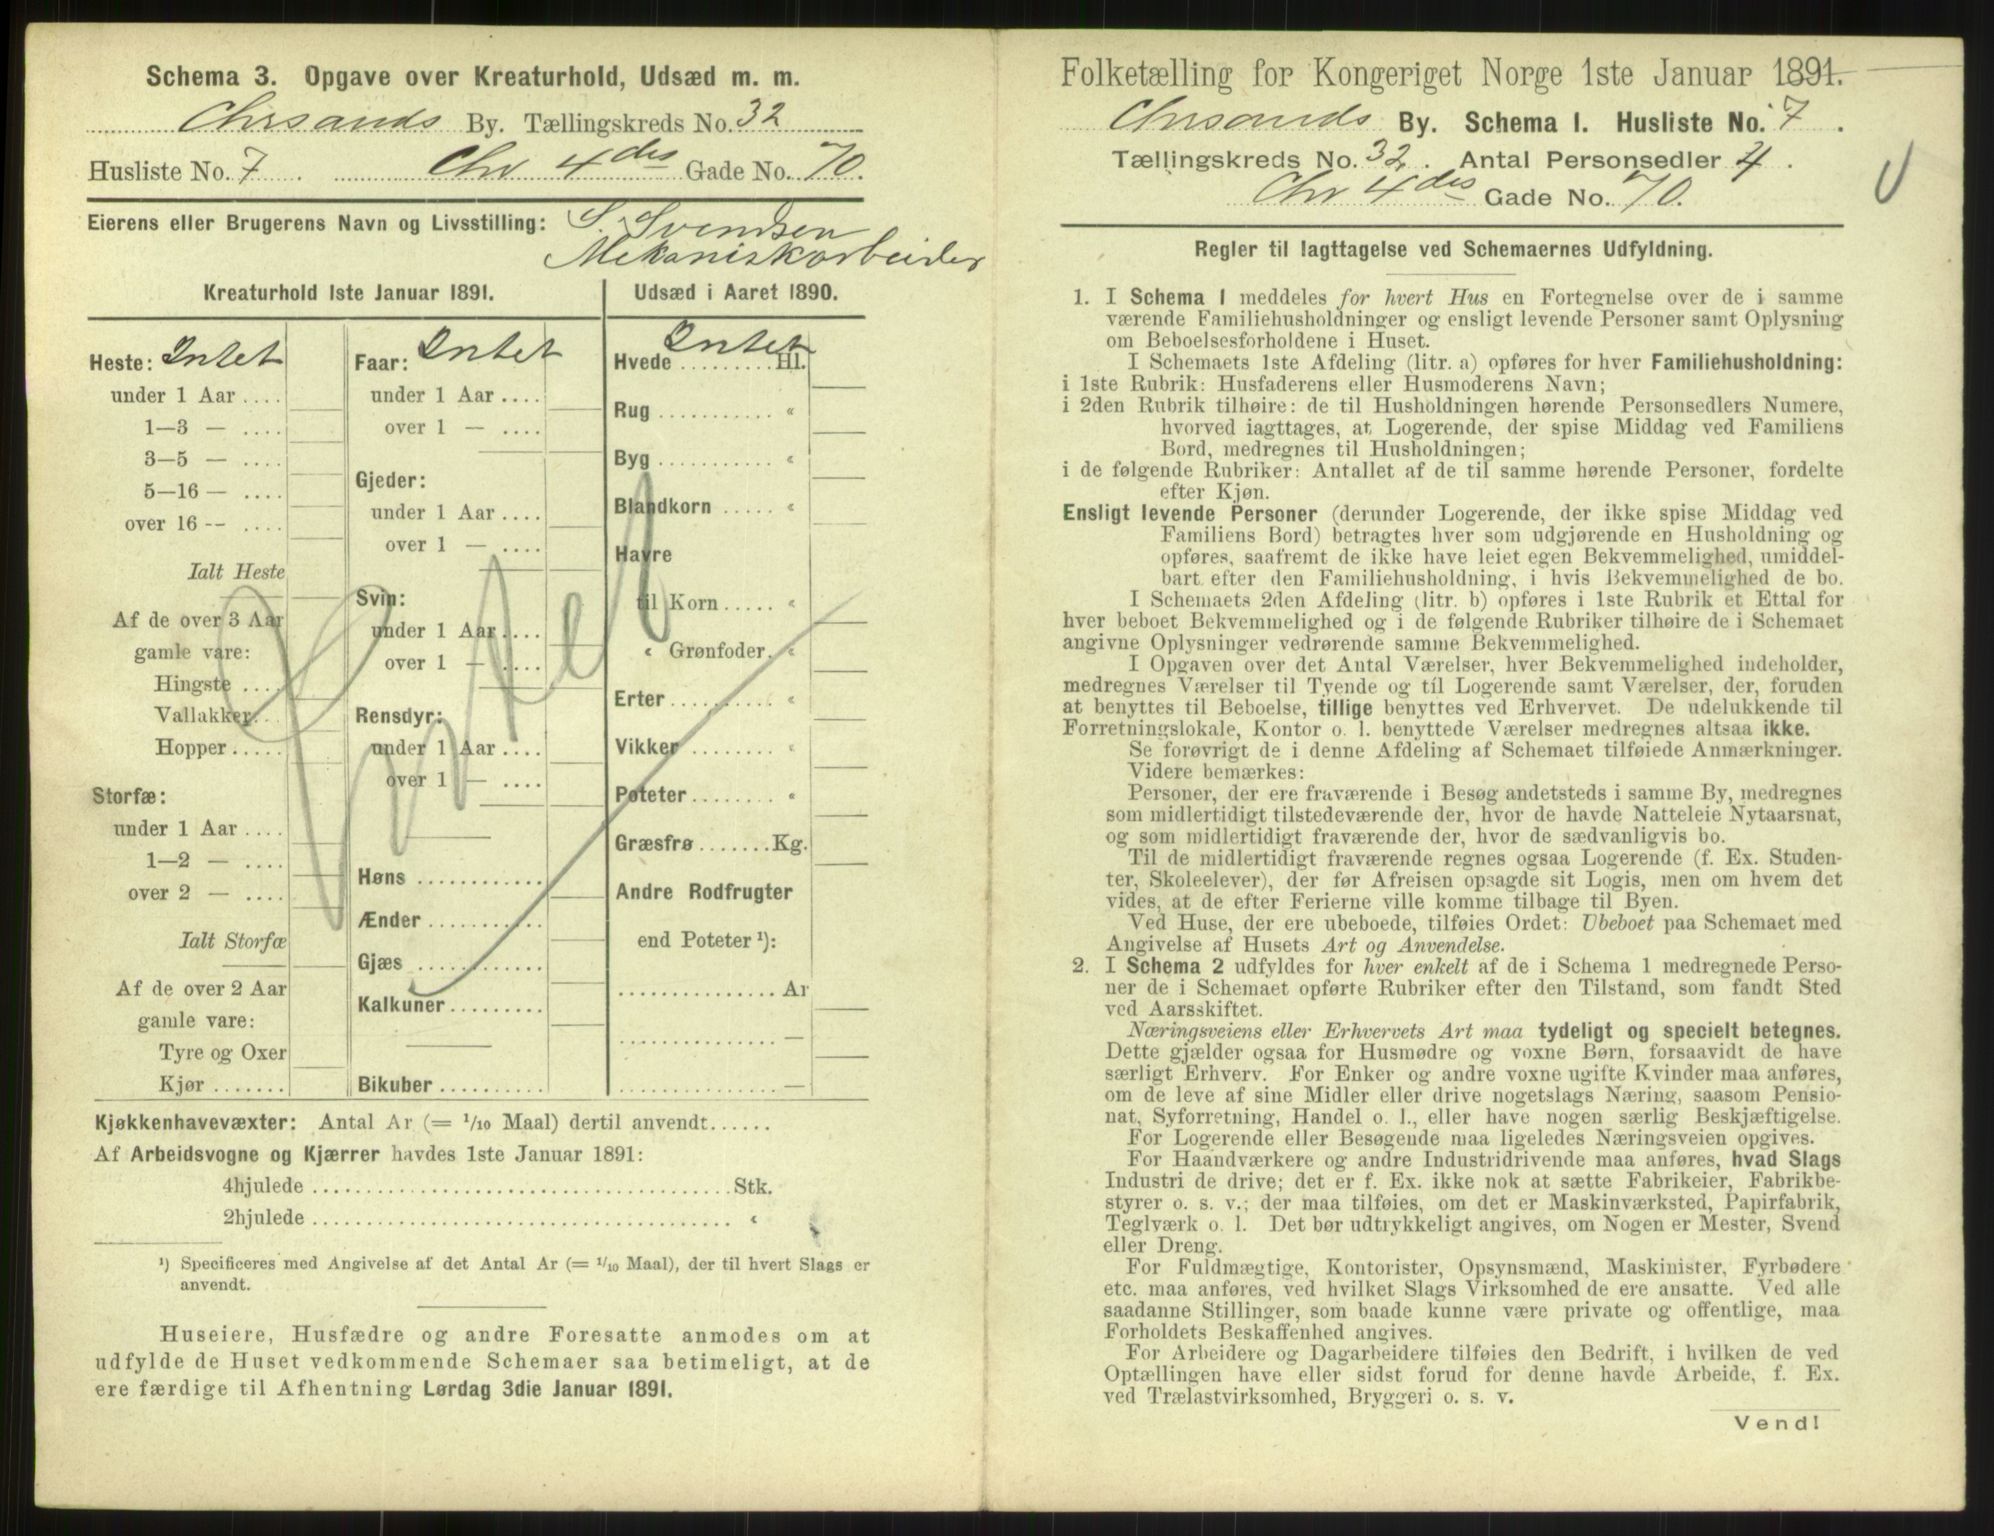 Schema 3. Opgave over Kreaturhold, Udsæd m. m.
Chrsands By. Tællingskreds No. 32
Husliste No. 7. Chr 4des Gade No. 70.
Eierens eller Brugerens Navn og Livsstilling: S. Svendsen
Mekaniskarbeider
Kreaturhold 1ste Januar 1891.
Heste: Intet
under 1 Aar ....
1—3 — ....
3—5 — ....
5—16 — ....
over 16 -- ....
Ialt Heste
Af de over 3 Aar
gamle vare:
Hingste ....
Vallakker..
Hopper.....
Storfæ:
under 1 Aar ....
1—2 — ....
over 2 — ....
Ialt Storfæ
Af de over 2 Aar
gamle vare:
Tyre og Oxer
Kjør.......
Faar: Intet
under 1 Aar ....
over 1 — ....
Gjeder:
under 1 Aar ....
over 1 — ....
Svin:
under 1 Aar ....
over 1 — ....
Rensdyr:
under 1 Aar ....
over 1 — ....
Høns ............
Ænder ...........
Gjæs ............
Kalkuner.........
Bikuber..........
Udsæd i Aaret 1890.
Intet
Hvede.........Hl.
Rug........... «
Byg........... «
Blandkorn ..... «
Havre
til Korn..... «
« Grønfoder. «
Erter......... «
Vikker........ «
Poteter........ «
Græsfrø.......Kg.
Andre Rodfrugter
end Poteter ¹):
............... Ar
............... —
............... —
Kjøkkenhavevæxter: Antal Ar (= 1/10 Maal) dertil anvendt......
Af Arbeidsvogne og Kjærrer havdes 1ste Januar 1891:
4hjulede ....................................... Stk.
2hjulede ....................................... «
¹) Specificeres med Angivelse af det Antal Ar (= 1/10 Maal), der til hvert Slags er
anvendt.
Huseiere, Husfædre og andre Foresatte anmodes om at
udfylde de Huset vedkommende Schemaer saa betimeligt, at de
ere færdige til Afhentning Lørdag 3die Januar 1891.
Folketælling for Kongeriget Norge 1ste Januar 1891.
Chrsands By. Schema 1. Husliste No. 7.
Tællingskreds No. 32. Antal Personsedler 4.
Chr 4des Gade No. 70.
Regler til Iagttagelse ved Schemaernes Udfyldning.
1. I Schema 1 meddeles for hvert Hus en Fortegnelse over de i samme
værende Familiehusholdninger og ensligt levende Personer samt Oplysning
om Beboelsesforholdene i Huset.
I Schemaets 1ste Afdeling (litr. a) opføres for hver Familiehusholdning:
i 1ste Rubrik: Husfaderens eller Husmoderens Navn;
i 2den Rubrik tilhøire: de til Husholdningen hørende Personsedlers Numere,
hvorved iagttages, at Logerende, der spise Middag ved Familiens
Bord, medregnes til Husholdningen;
i de følgende Rubriker: Antallet af de til samme hørende Personer, fordelte
efter Kjøn.
Ensligt levende Personer (derunder Logerende, der ikke spise Middag ved
Familiens Bord) betragtes hver som udgjørende en Husholdning og
opføres, saafremt de ikke have leiet egen Bekvemmelighed, umiddel-
bart efter den Familiehusholdning, i hvis Bekvemmelighed de bo.
I Schemaets 2den Afdeling (litr. b) opføres i 1ste Rubrik et Ettal for
hver beboet Bekvemmelighed og i de følgende Rubriker tilhøire de i Schemaet
angivne Oplysninger vedrørende samme Bekvemmelighed.
I Opgaven over det Antal Værelser, hver Bekvemmelighed indeholder,
medregnes Værelser til Tyende og til Logerende samt Værelser, der, foruden
at benyttes til Beboelse, tillige benyttes ved Erhvervet. De udelukkende til
Forretningslokale, Kontor o. l. benyttede Værelser medregnes altsaa ikke.
Se forøvrigt de i denne Afdeling af Schemaet tilføiede Anmærkninger.
Videre bemærkes:
Personer, der ere fraværende i Besøg andetsteds i samme By, medregnes
som midlertidigt tilstedeværende der, hvor de havde Natteleie Nytaarsnat,
og som midlertidigt fraværende der, hvor de sædvanligvis bo.
Til de midlertidigt fraværende regnes ogsaa Logerende (f. Ex. Studen-
ter, Skoleelever), der før Afreisen opsagde sit Logis, men om hvem det
vides, at de efter Ferierne ville komme tilbage til Byen.
Ved Huse, der ere ubeboede, tilføies Ordet: Ubeboet paa Schemaet med
Angivelse af Husets Art og Anvendelse.
2. I Schema 2 udfyldes for hver enkelt af de i Schema 1 medregnede Perso-
ner de i Schemaet opførte Rubriker efter den Tilstand, som fandt Sted
ved Aarsskiftet.
Næringsveiens eller Erhvervets Art maa tydeligt og specielt betegnes.
Dette gjælder ogsaa for Husmødre og voxne Børn, forsaavidt de have
særligt Erhverv. For Enker og andre voxne ugifte Kvinder maa anføres,
om de leve af sine Midler eller drive nogetslags Næring, saasom Pensio-
nat, Syforretning, Handel o. l., eller have nogen særlig Beskjæftigelse.
For Logerende eller Besøgende maa ligeledes Næringsveien opgives.
For Haandværkere og andre Industridrivende maa anføres, hvad Slags
Industri de drive; det er f. Ex. ikke nok at sætte Fabrikeier, Fabrikbe-
styrer o. s. v.; der maa tilføies, om det er Maskinværksted, Papirfabrik,
Teglværk o. l. Det bør udtrykkeligt angives, om Nogen er Mester, Svend
eller Dreng.
For Fuldmægtige, Kontorister, Opsynsmænd, Maskinister, Fyrbødere
etc. maa anføres, ved hvilket Slags Virksomhed de ere ansatte. Ved alle
saadanne Stillinger, som baade kunne være private og offentlige, maa
Forholdets Beskaffenhed angives.
For Arbeidere og Dagarbeidere tilføies den Bedrift, i hvilken de ved
Optællingen have eller sidst forud for denne havde Arbeide, f. Ex.
ved Trælastvirksomhed, Bryggeri o. s. v.
Vend!